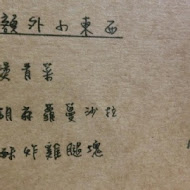 額外小東西
燙青菜
胡麻蘿蔓沙拉
酥炸雞腿塊